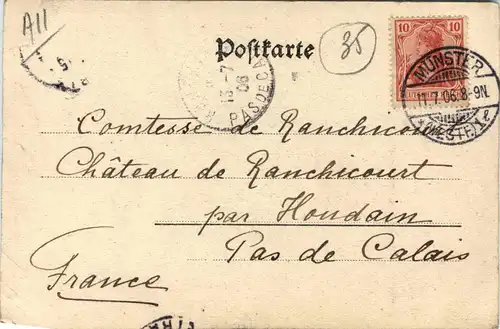 A11
Postkarte
35
10
10
MÜNSTER
11.7.06.8-9N.
(WESTF.) l
13-7
06
PAS DE CA
Comtesse de Ranchicourt
Château de Ranchicourt
par Houdain
Pas de Calais
France